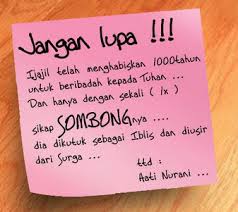 Jangan lupa !!!
Ijajil telah menghabiskan 1000tahun
untuk beribadah kepada Tuhan ...
Dan hanya dengan sekali ( 1x )
sikap SOMBONGnya ....
dia dikutuk sebagai Iblis dan diusir
dari Surga ...
ttd :
Aati Nurani ...